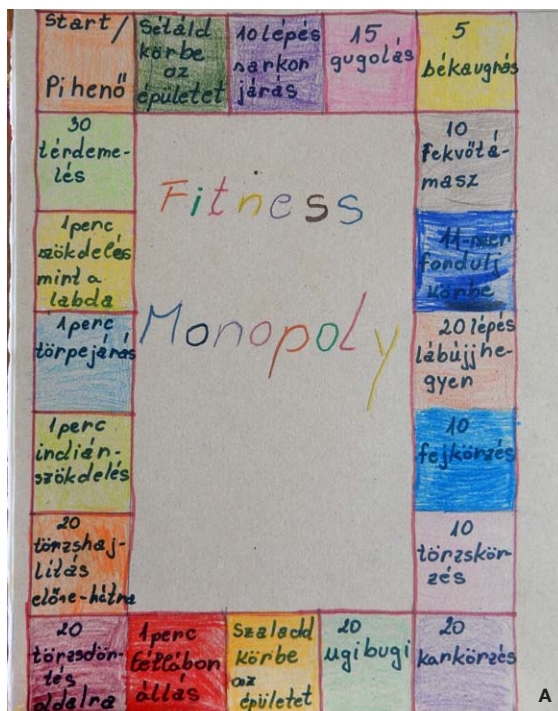 Start/
Pihenő
Sétáld
körbe
az
épületet
10 lépés
sarkon
járás
15
gugolás
5
békaugrás
30
térdeme-
lés
10
Fekvőtá-
masz
Fitness
Monopoly
1 perc
szökdelés
mint a
labda
11-szer
fordulj
körbe
1 perc
törpejárás
20 lépés
lábujjhe-
gyen
1 perc
indián-
szökdelés
10
fejkörzés
20
törzshaj-
lítás
előre-hátra
10
törzskör-
zés
20
törzsdön-
tés
oldalra
1 perc
féllábon
állás
Szaladd
körbe
az
épületet
20
ugibugi
20
karkörzés
A